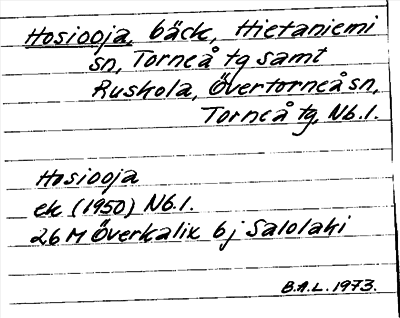 Hosiooja, bäck, Hietaniemi
sn, Torneå tg samt
Ruskola, Övertorneå sn,
Torneå tg, Nb.l.
Hosiooja
ek (1950) Nb.l.
26 M Överkalix bj Salolaki
B.A.L. 1973.